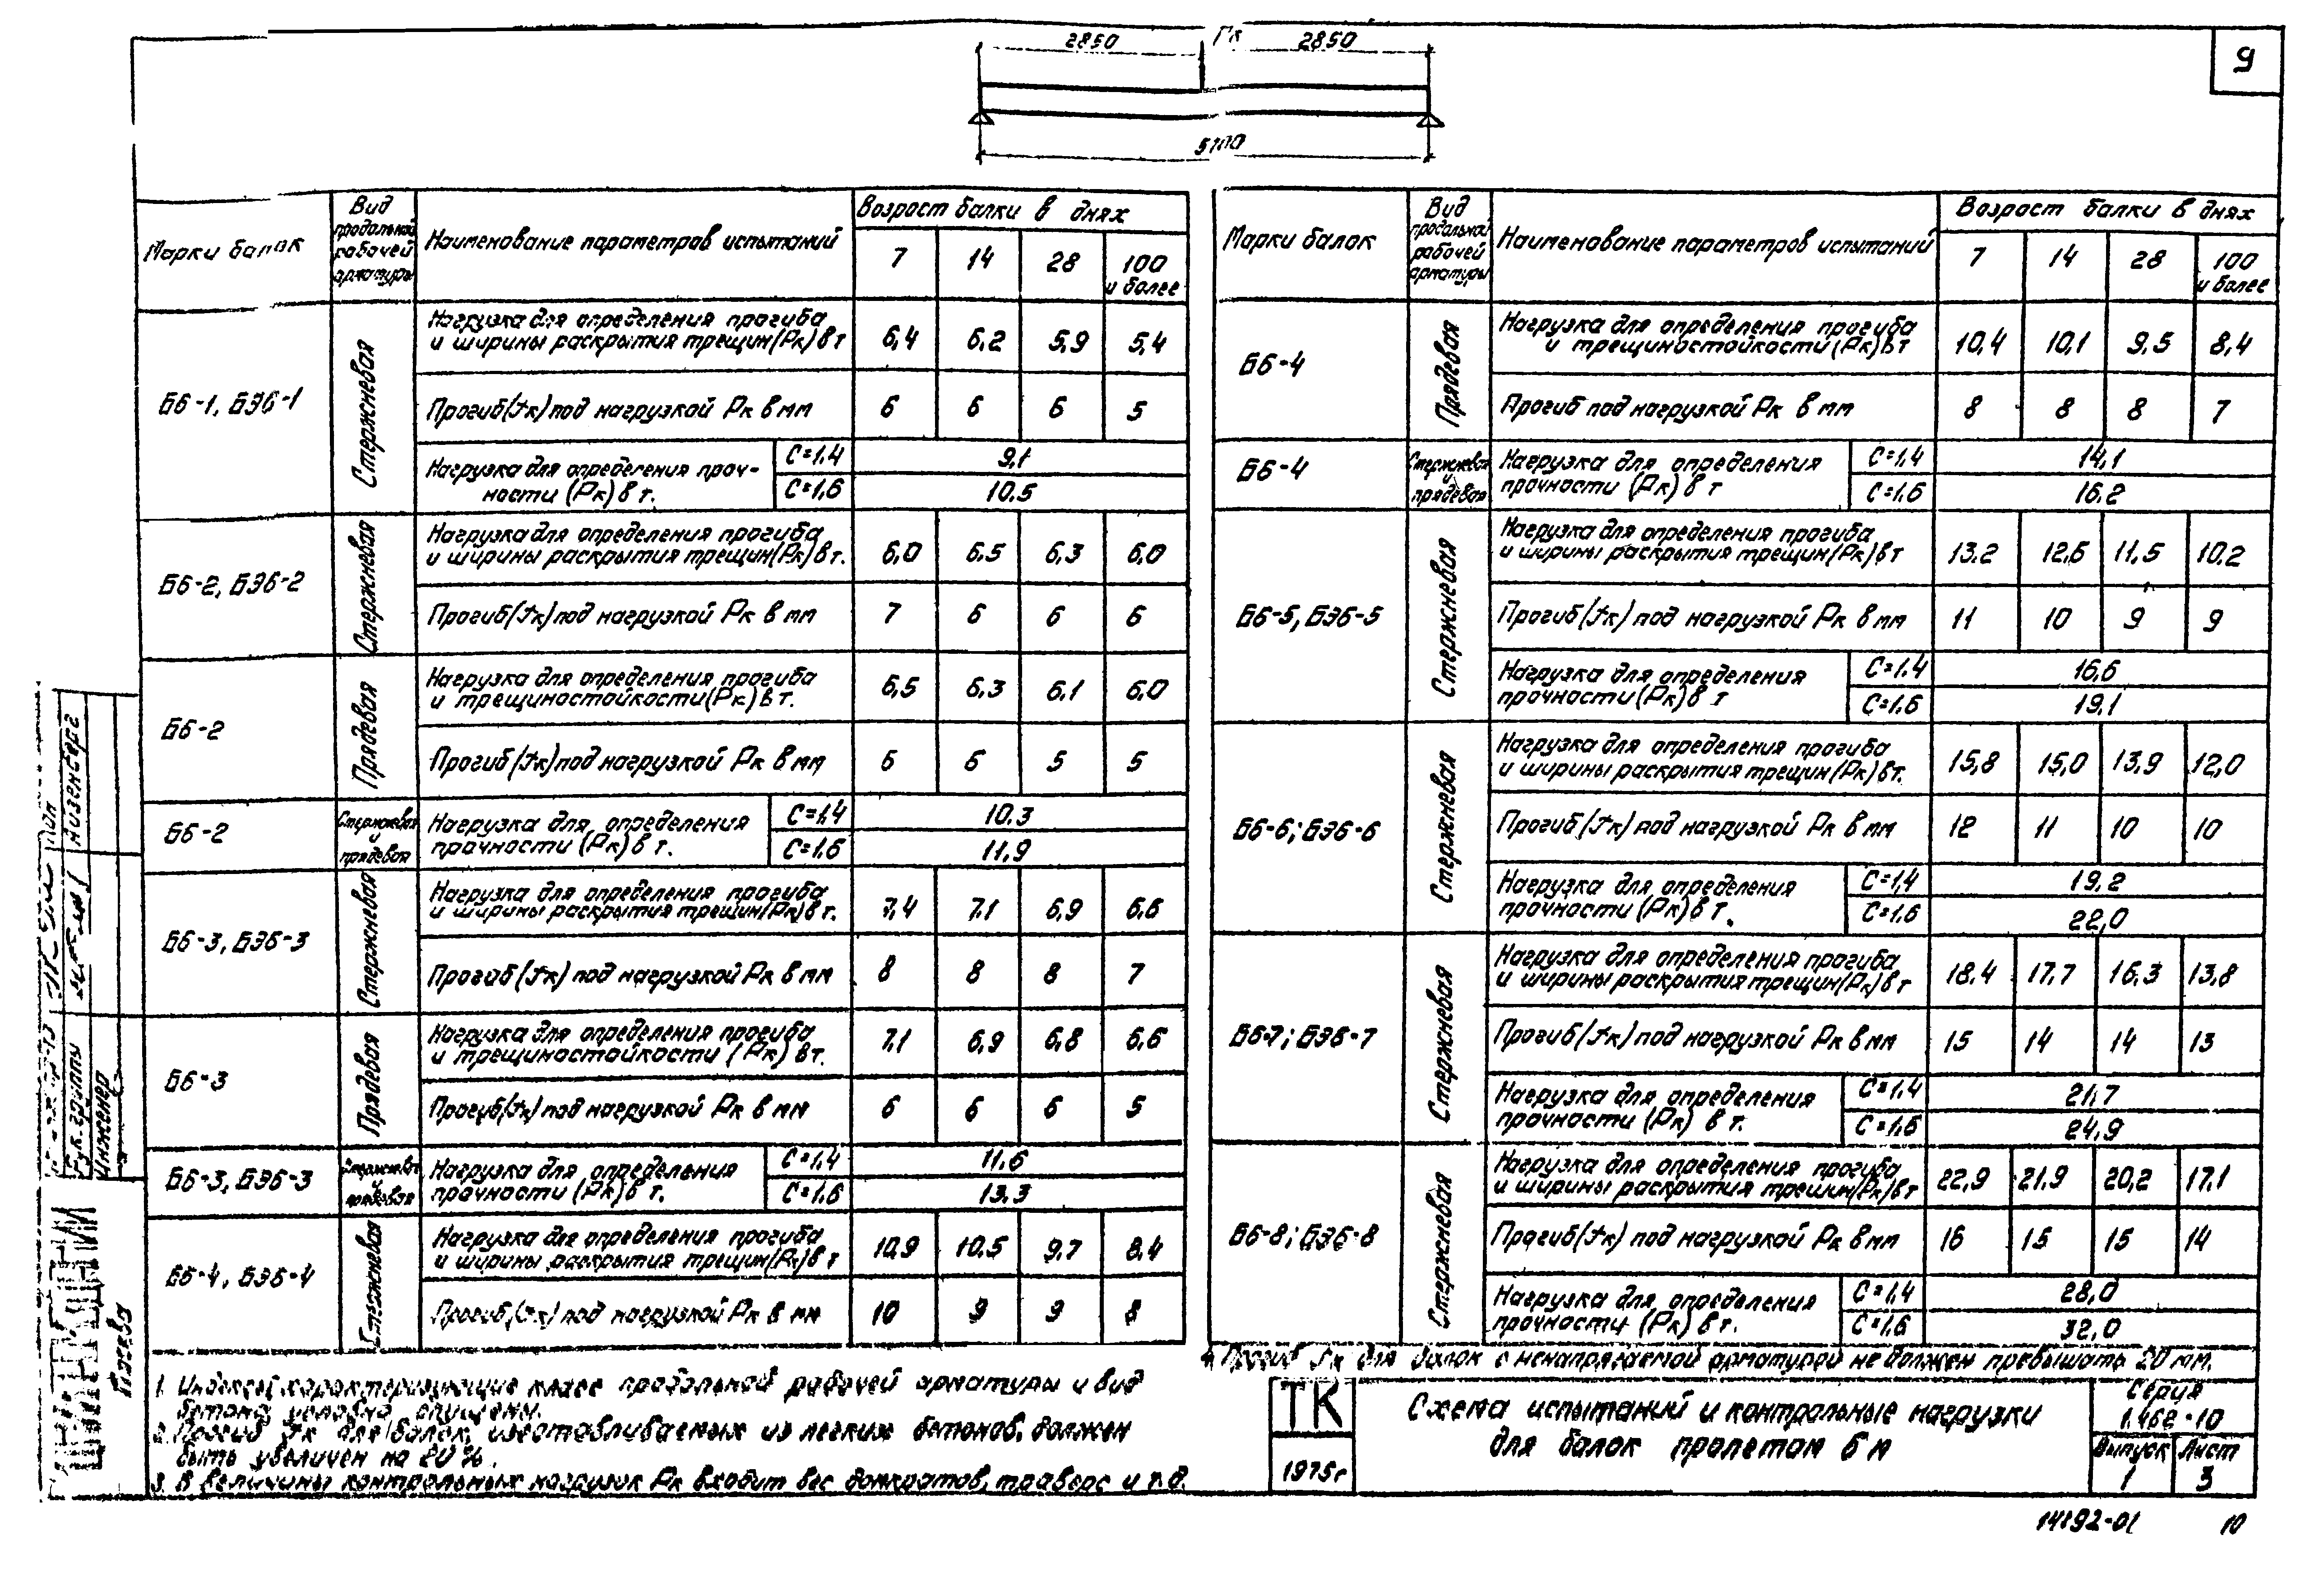 9
2850 Рк 2850
5700
Марки балок
Вид продольной рабочей арматуры
Наименование параметров испытаний
Возраст балки в днях
7 14 28 100 и более
Б6-1, БЭ6-1
Стержневая
Нагрузка для определения прогиба
и ширины раскрытия трещин (Рк) в т 6,4 6.2 5,9 5,4
Прогиб (fк) под нагрузкой Рк в мм 6 6 6 5
Нагрузка для определения проч-
ности (Рк) в т.
С=1,4 9,1
С=1,6 10,5
Б6-2, БЭ6-2
Стержневая
Нагрузка для определения прогиба
и ширины раскрытия трещин (Рк) в т. 6,0 6.5 6,3 6,0
Прогиб (fк) под нагрузкой Рк в мм 7 6 6 6
Б6-2
Прядевая
Нагрузка для определения прогиба
и трещиностойкости (Рк) в т. 6,5 6.3 6,1 6,0
Прогиб (fк) под нагрузкой Рк в мм 6 6 5 5
Б6-2
Стержневая и прядевая
Нагрузка для определения
прочности (Рк) в т.
С=1,4 10,3
С=1,6 11,9
Б6-3, БЭ6-3
Стержневая
Нагрузка для определения прогиба
и ширины раскрытия трещин (Рк) в т. 7,4 7.1 6,9 6,6
Прогиб (fк) под нагрузкой Рк в мм 8 8 8 7
Б6-3
Прядевая
Нагрузка для определения прогиба
и трещиностойкости (Рк) в т. 7,1 6,9 6,8 6,6
Прогиб (fк) под нагрузкой Рк в мм 6 6 6 5
Б6-3, БЭ6-3
Стержневая и прядевая
Нагрузка для определения
прочности (Рк) в т.
С=1,4 11,6
С=1,6 13,3
Б6-4, БЭ6-4
Стержневая
Нагрузка для определения прогиба
и ширины раскрытия трещин (Рк) в т 10,9 10,5 9,7 8,4
Прогиб (fк) под нагрузкой Рк в мм 10 9 9 8
Марки балок
Вид продольной рабочей арматуры
Наименование параметров испытаний
Возраст балки в днях
7 14 28 100 и более
Б6-4
Прядевая
Нагрузка для определения прогиба
и трещиностойкости (Рк) в т 10,4 10,1 9,5 8,4
Прогиб под нагрузкой Рк в мм 8 8 8 7
Б6-4
Стержневая и прядевая
Нагрузка для определения
прочности (Рк) в т
С=1,4 14,1
С=1,6 16,2
Б6-5, БЭ6-5
Стержневая
Нагрузка для определения прогиба
и ширины раскрытия трещин (Рк) в т 13,2 12,6 11,5 10,2
Прогиб (fк) под нагрузкой Рк в мм 11 10 9 9
Нагрузка для определения
прочности (Рк) в т
С=1,4 16,6
С=1,6 19,1
Б6-6; БЭ6-6
Стержневая
Нагрузка для определения прогиба
и ширины раскрытия трещин (Рк) в т. 15,8 15,0 13,9 12,0
Прогиб (fк) под нагрузкой Рк в мм 12 11 10 10
Нагрузка для определения
прочности (Рк) в т.
С=1,4 19,2
С=1,6 22,0
Б6-7; БЭ6-7
Стержневая
Нагрузка для определения прогиба
и ширины раскрытия трещин (Рк) в т 18,4 17,7 16,3 13,8
Прогиб (fк) под нагрузкой Рк в мм 15 14 14 13
Нагрузка для определения
прочности (Рк) в т.
С=1,4 21,7
С=1,6 24,9
Б6-8; БЭ6-8
Стержневая
Нагрузка для определения прогиба
и ширины раскрытия трещин (Рк) в т 22,9 21.9 20,2 17,1
Прогиб (fк) под нагрузкой Рк в мм 16 15 15 14
Нагрузка для определения
прочности (Рк) в т.
С=1,4 28,0
С=1,6 32,0
1. Индексы, характеризующие класс продольной рабочей арматуры и вид
бетона, условно опущены.
2. Прогиб fк для балок, изготавливаемых из легких бетонов, должен
быть увеличен на 20%.
3. В величины контрольных нагрузок Рк входит вес домкратов, траверс и т.д.
4. Прогиб fк для балок с ненапрягаемой арматурой не должен превышать 20 мм.
ТК
1975г
Схема испытаний и контрольные нагрузки
для балок пролетом 6 м
Серия
1.462-10
Выпуск Лист
1 3
14192-01 10
Рук. группы
Инженер